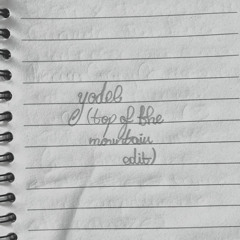 yodel
(top of the
mountain
edit)